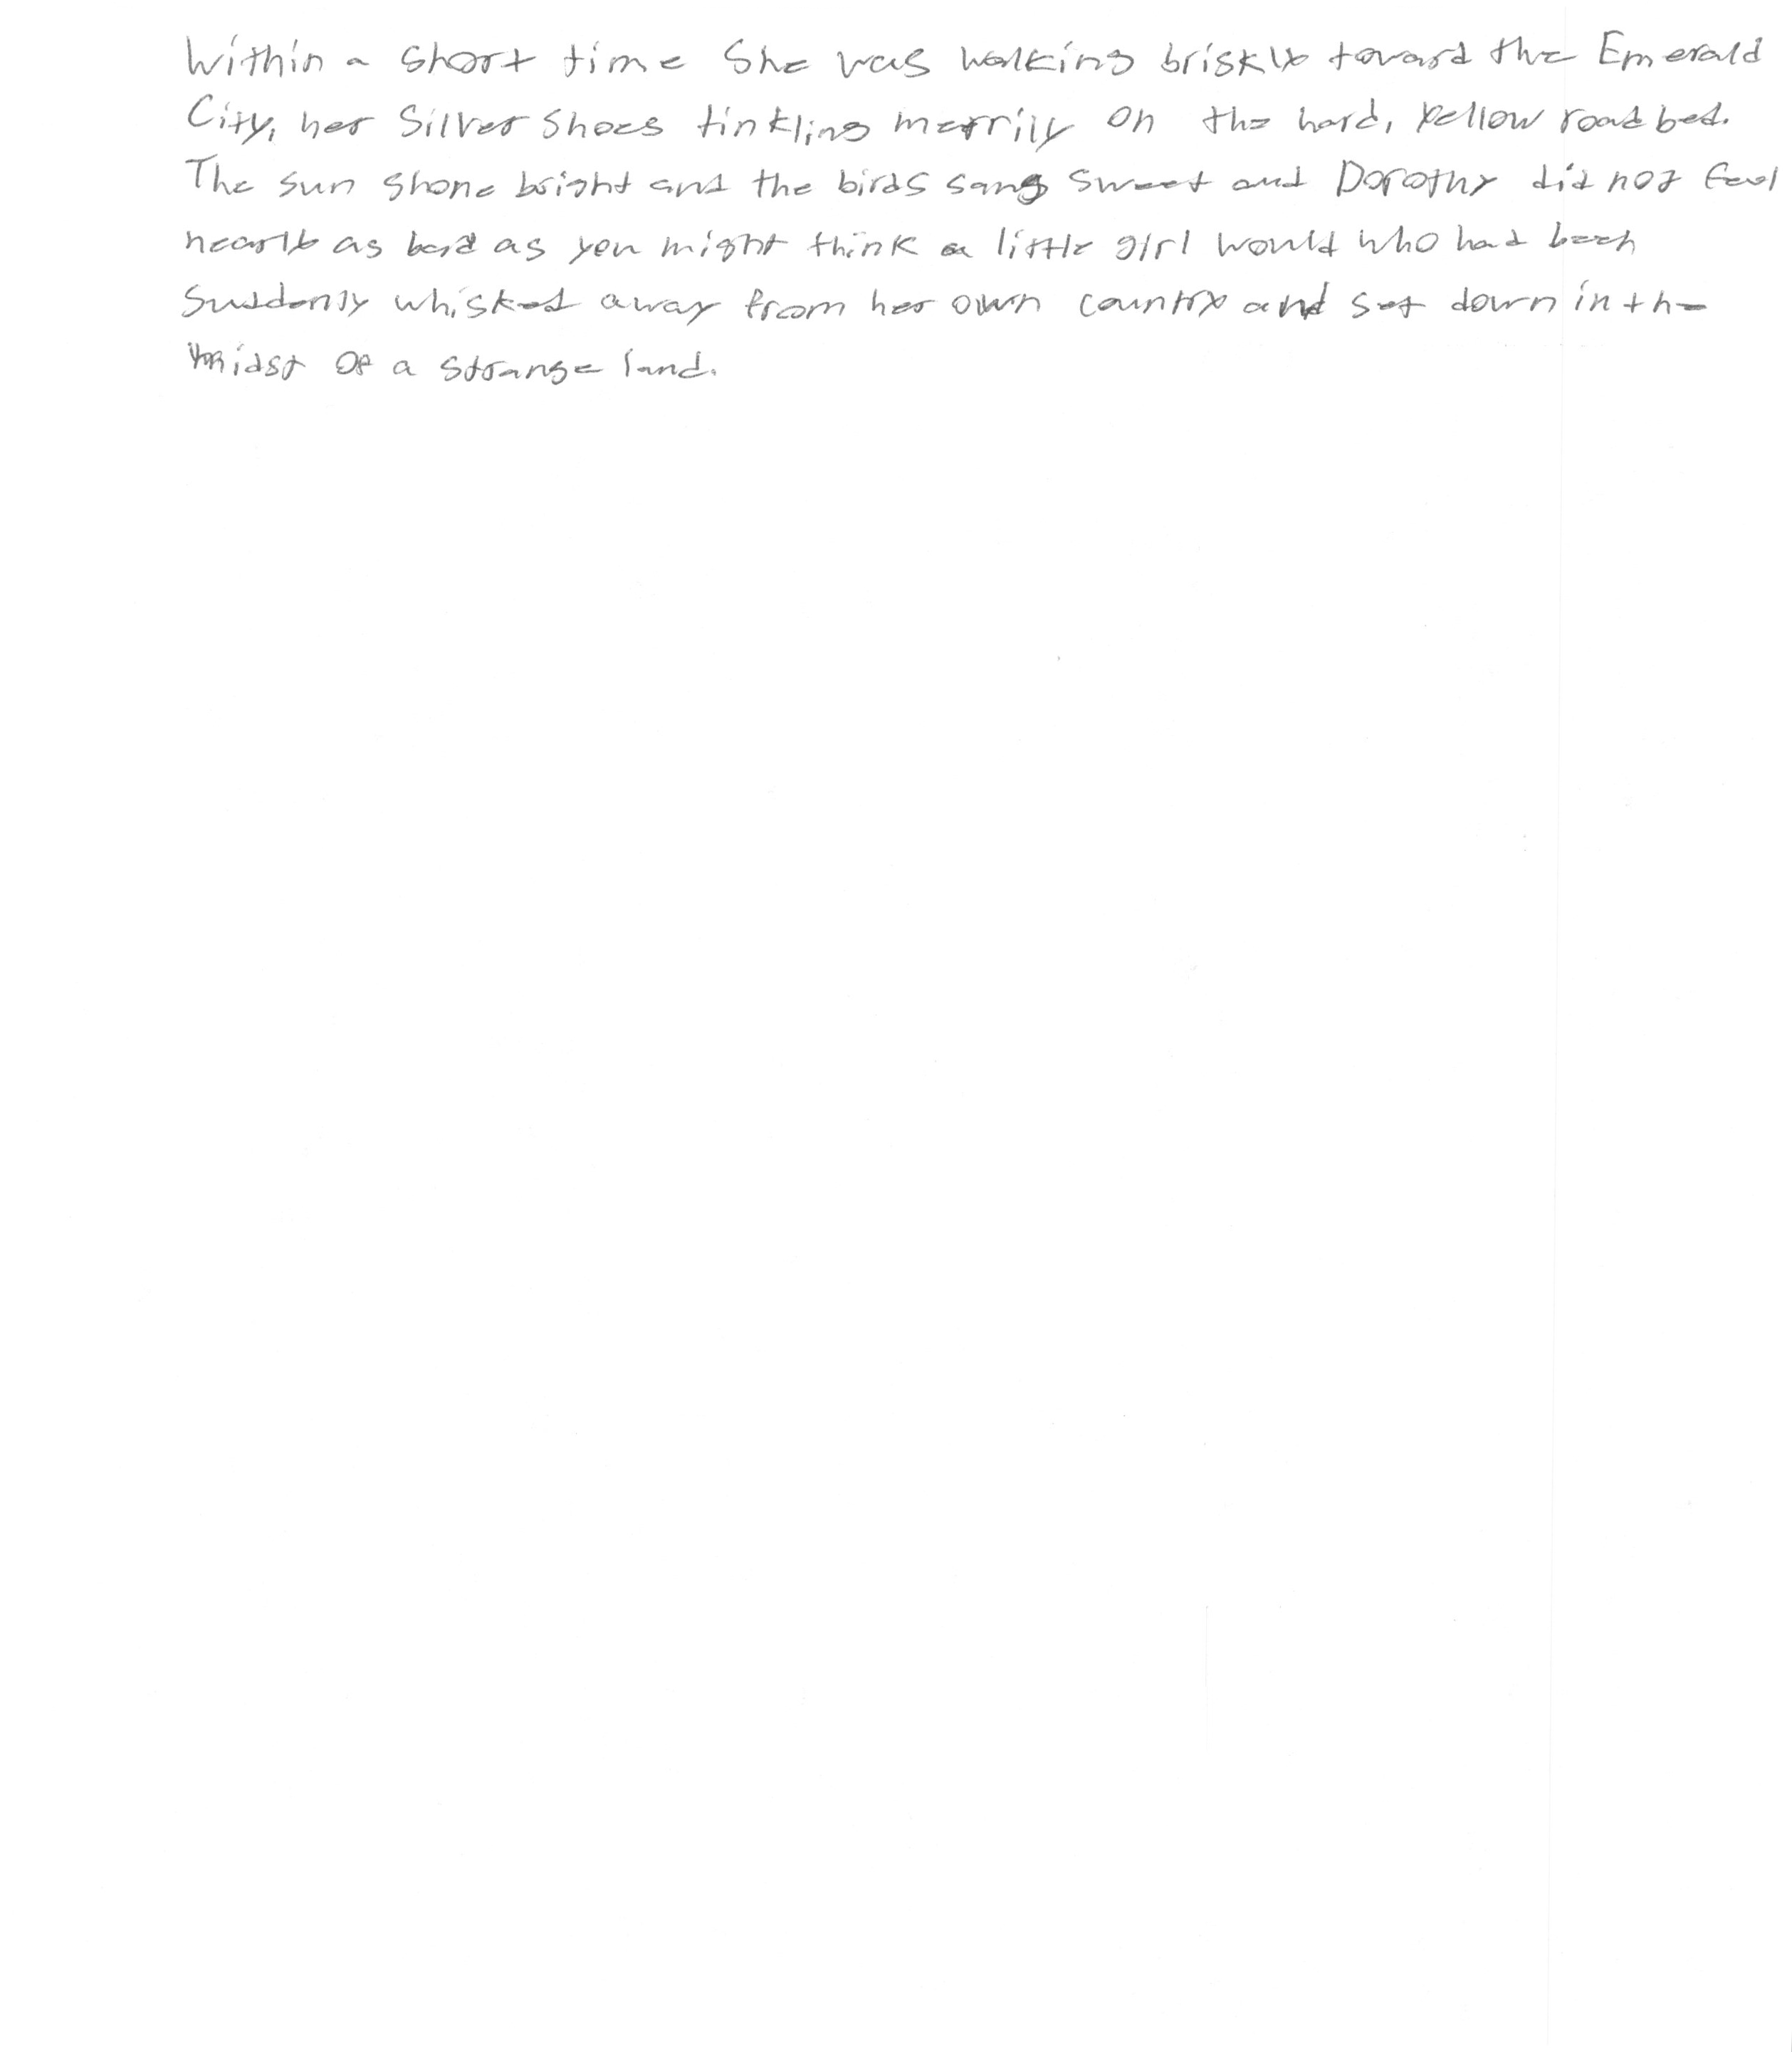 Within a short time she was walking briskly toward the Emerald
City, her Silver Shoes tinkling merrily on the hard, yellow roadbed.
The sun shone bright and the birds sang sweet and Dorothy did not feel
nearly as bad as you might think a little girl would who had been
suddenly whisked away from her own country and set down in the
midst of a strange land.